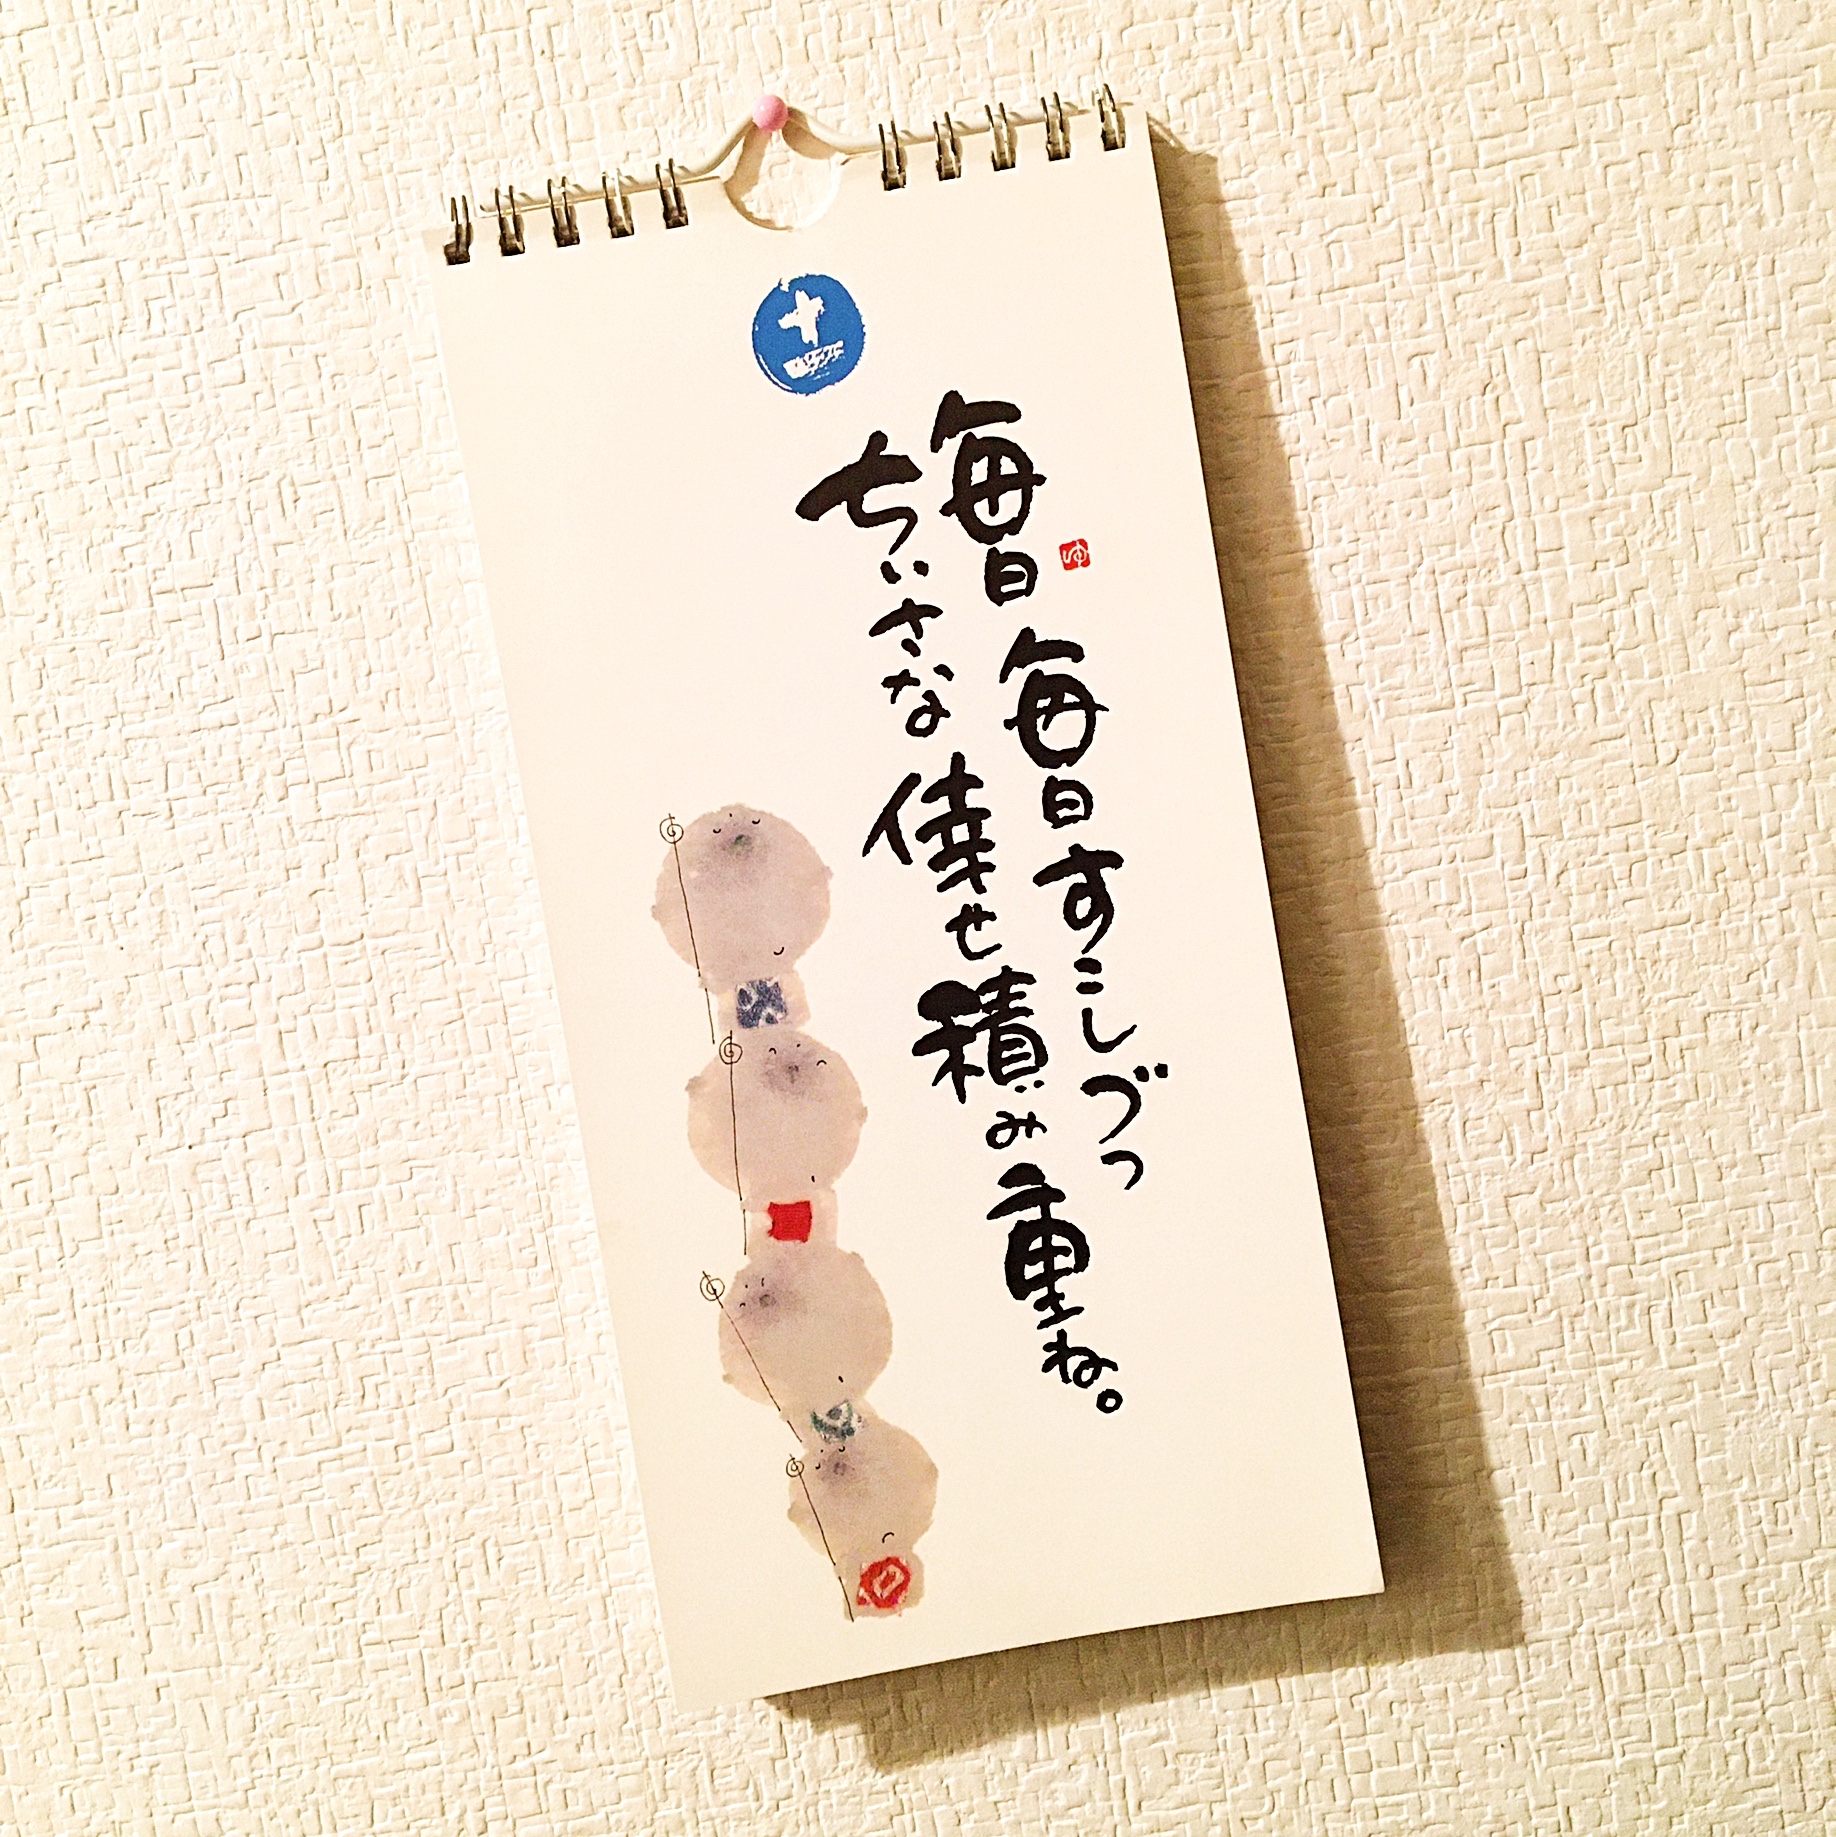 十一
毎日毎日すこしづつ
ちいさな倖せ積み重ね。
ゆ